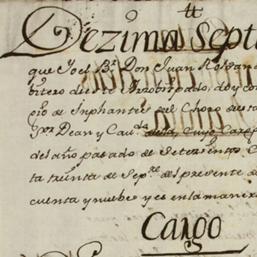 Dezima Sept
que Yo el B.r Don Juan Roldan
bitero deste Arzobispado, doy co
gio de Inphantes del Choro desta
Dean y Cau.do desta, Cuyo Cargo
del año pasado de Setezientos C
ta treinta de Sep.re del presente a
cuenta y nuebe y es en la manera
Cargo